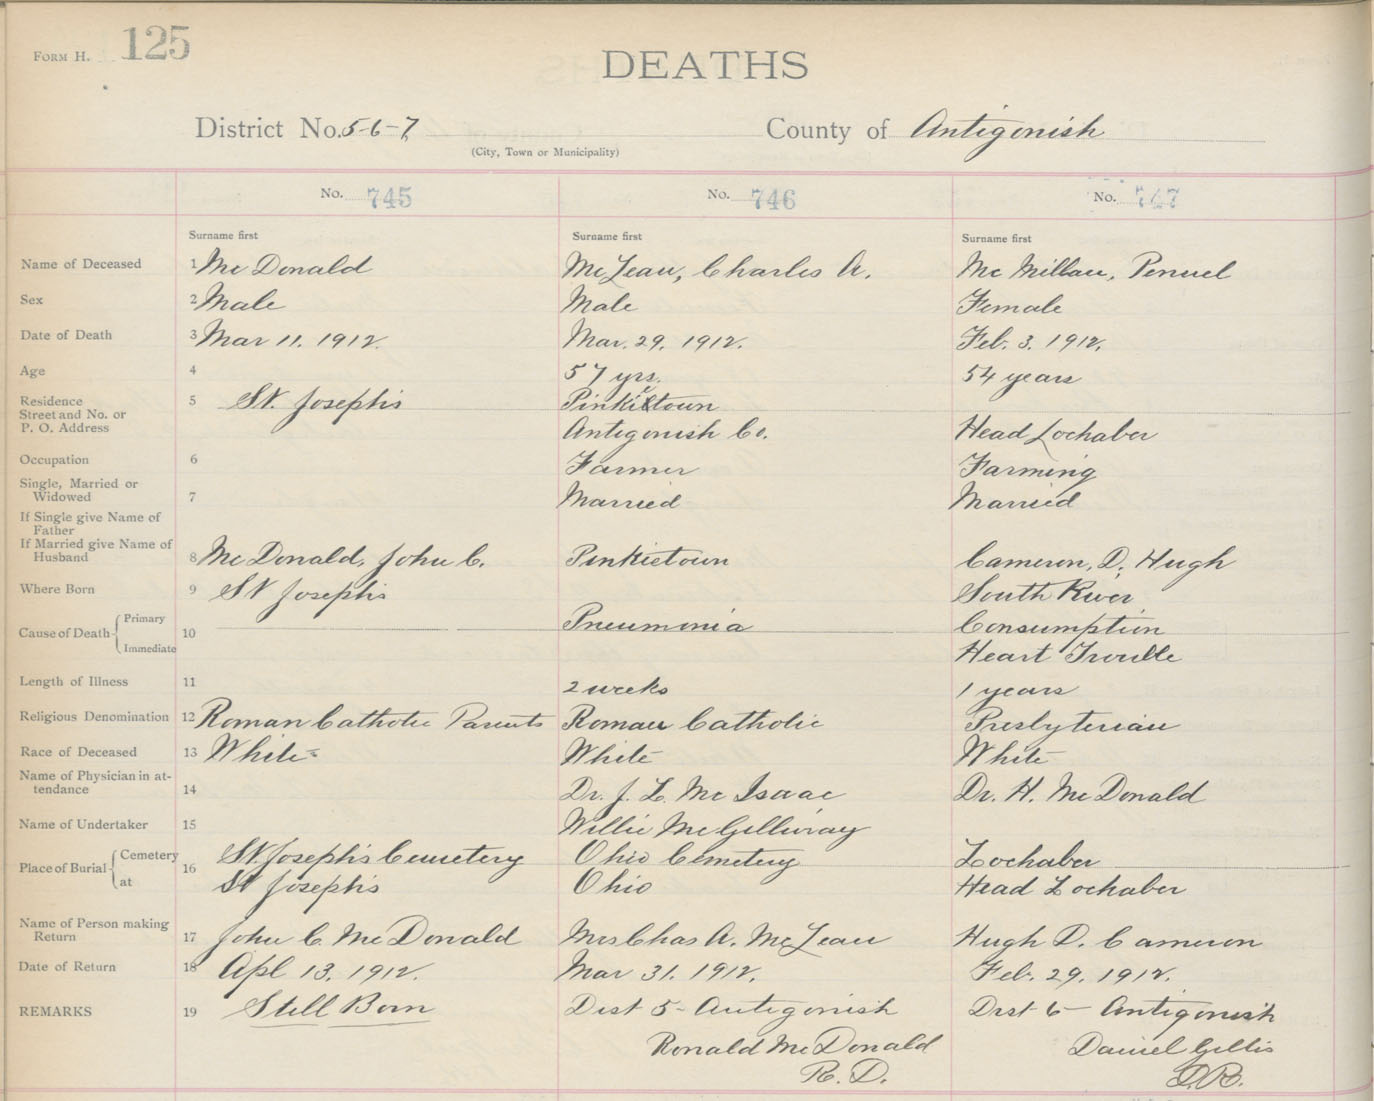 FORM H. 125
DEATHS
District No. 5-6-7 County of Antigonish
(City, Town or Municipality)
No. 745 No. 746 No. 747
Surname first Surname first Surname first
Name of Deceased 1 Mc Donald McLean, Charles A. Mc Millan, Penuel
Sex 2 Male Male Female
Date of Death 3 Mar 11. 1912. Mar. 29. 1912. Feb. 3. 1912.
Age 4 57 yrs. 54 years
Residence 5 St. Josephs Pinkietown
Street and No. or
P. O. Address Antigonish Co. Head Lochaber
Occupation 6 Farmer Farming
Single, Married or
Widowed 7 Married Married
If Single give Name of
Father
If Married give Name of
Husband 8 Mc Donald, John C. Pinkietown Cameron, D. Hugh
Where Born 9 St Josephs South River
Cause of Death Primary 10 Pneumonia Consumption
Immediate Heart Trouble
Length of Illness 11 2 weeks 1 years
Religious Denomination 12 Roman Catholic Parents Roman Catholic Presbyterian
Race of Deceased 13 White White White
Name of Physician in at-
tendance 14 Dr. J. L. Mc Isaac Dr. H. Mc Donald
Name of Undertaker 15 Willie McGillivray
Place of Burial Cemetery 16 St. Joseph's Cemetery Ohio Cemetery Lochaber
at St Josephs Ohio Head Lochaber
Name of Person making
Return 17 John C. Mc Donald Mrs Chas A. McLean Hugh D. Cameron
Date of Return 18 Apl 13. 1912. Mar 31. 1912. Feb. 29. 1912.
REMARKS 19 Still Born Dist 5 - Antigonish Dist 6 - Antigonish
Ronald Mc Donald Daniel Gillis
R. D. D.R.